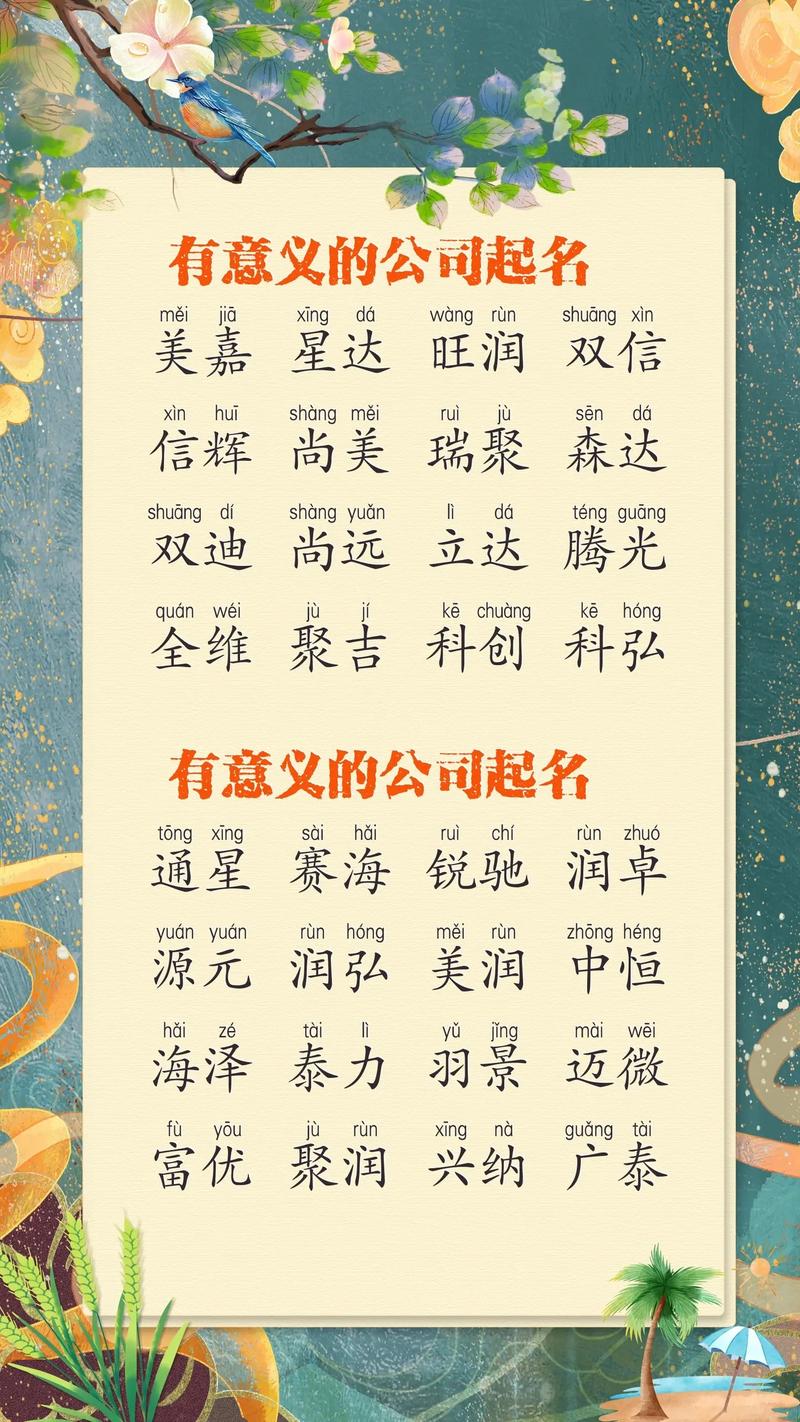 有意义的公司起名
měi jiā xīng dá wàng rùn shuāng xìn
美嘉 星达 旺润 双信
xìn huī shàng měi ruì jù sēn dá
信辉 尚美 瑞聚 森达
shuāng dí shàng yuǎn lì dá téng guāng
双迪 尚远 立达 腾光
quán wéi jù jí kē chuàng kē hóng
全维 聚吉 科创 科弘
有意义的公司起名
tōng xīng sài hǎi ruì chí rùn zhuó
通星 赛海 锐驰 润卓
yuán yuán rùn hóng měi rùn zhōng héng
源元 润弘 美润 中恒
hǎi zé tài lì yǔ jǐng mài wēi
海泽 泰力 羽景 迈微
fù yōu jù rùn xīng nà guǎng tài
富优 聚润 兴纳 广泰